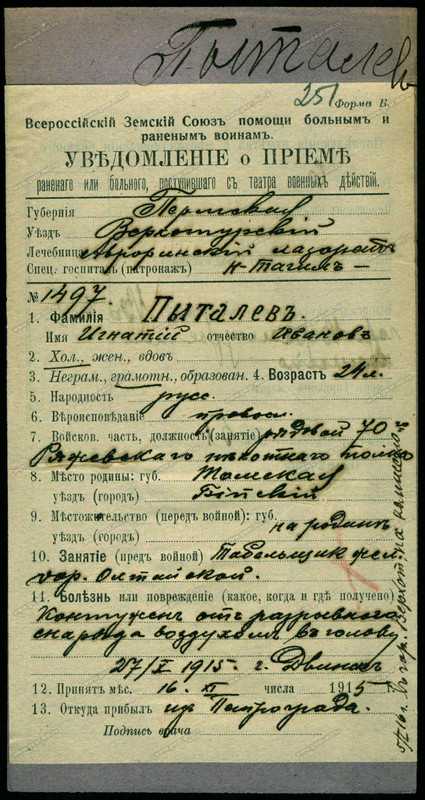 Пыталевъ
251 Форма В.
Всероссійскій Земскій Союзъ помощи больнымъ и
раненымъ воинамъ.
УВѢДОМЛЕНІЕ о ПРІЕМѢ
раненаго или больного, поступившаго съ театра военныхъ дѣйствій.
Губернія Пермская
Уѣздъ Верхотурскій
Лечебница Авроринскій лазаретъ
Спец. госпиталь (патронажъ) Н-Тагилъ
№ 1497.
1. Фамилія Пыталевъ.
Имя Игнатій отчество Ивановъ
2. Хол., жен., вдовъ.
3. Неграм., грамотн., образован. 4. Возрастъ 24 л.
5. Народность русс.
6. Вѣроисповѣданіе правосл.
7. Войсков. часть, должность (занятіе) рядовой 70
Ряжевскаго пѣхотнаго полка
8. Мѣсто родины: губ. Томская
уѣздъ (городъ) Бійскій
9. Мѣстожительство (передъ войной): губ.
уѣздъ (городъ) на родинѣ
10. Занятіе (предъ войной) Табельщик жел
дор. Олтайской.
11. Болѣзнь или поврежденіе (какое, когда и гдѣ получено)
Контуженъ отъ разрывного
снаряда воздухомъ въ голову
27/X 1915 г. Двинскъ
12. Принятъ мѣс. 16. XI числа 1915
13. Откуда прибылъ из Петрограда.
Подпись врача
5/II 16 г. въ гор. Верхот. на комиссію